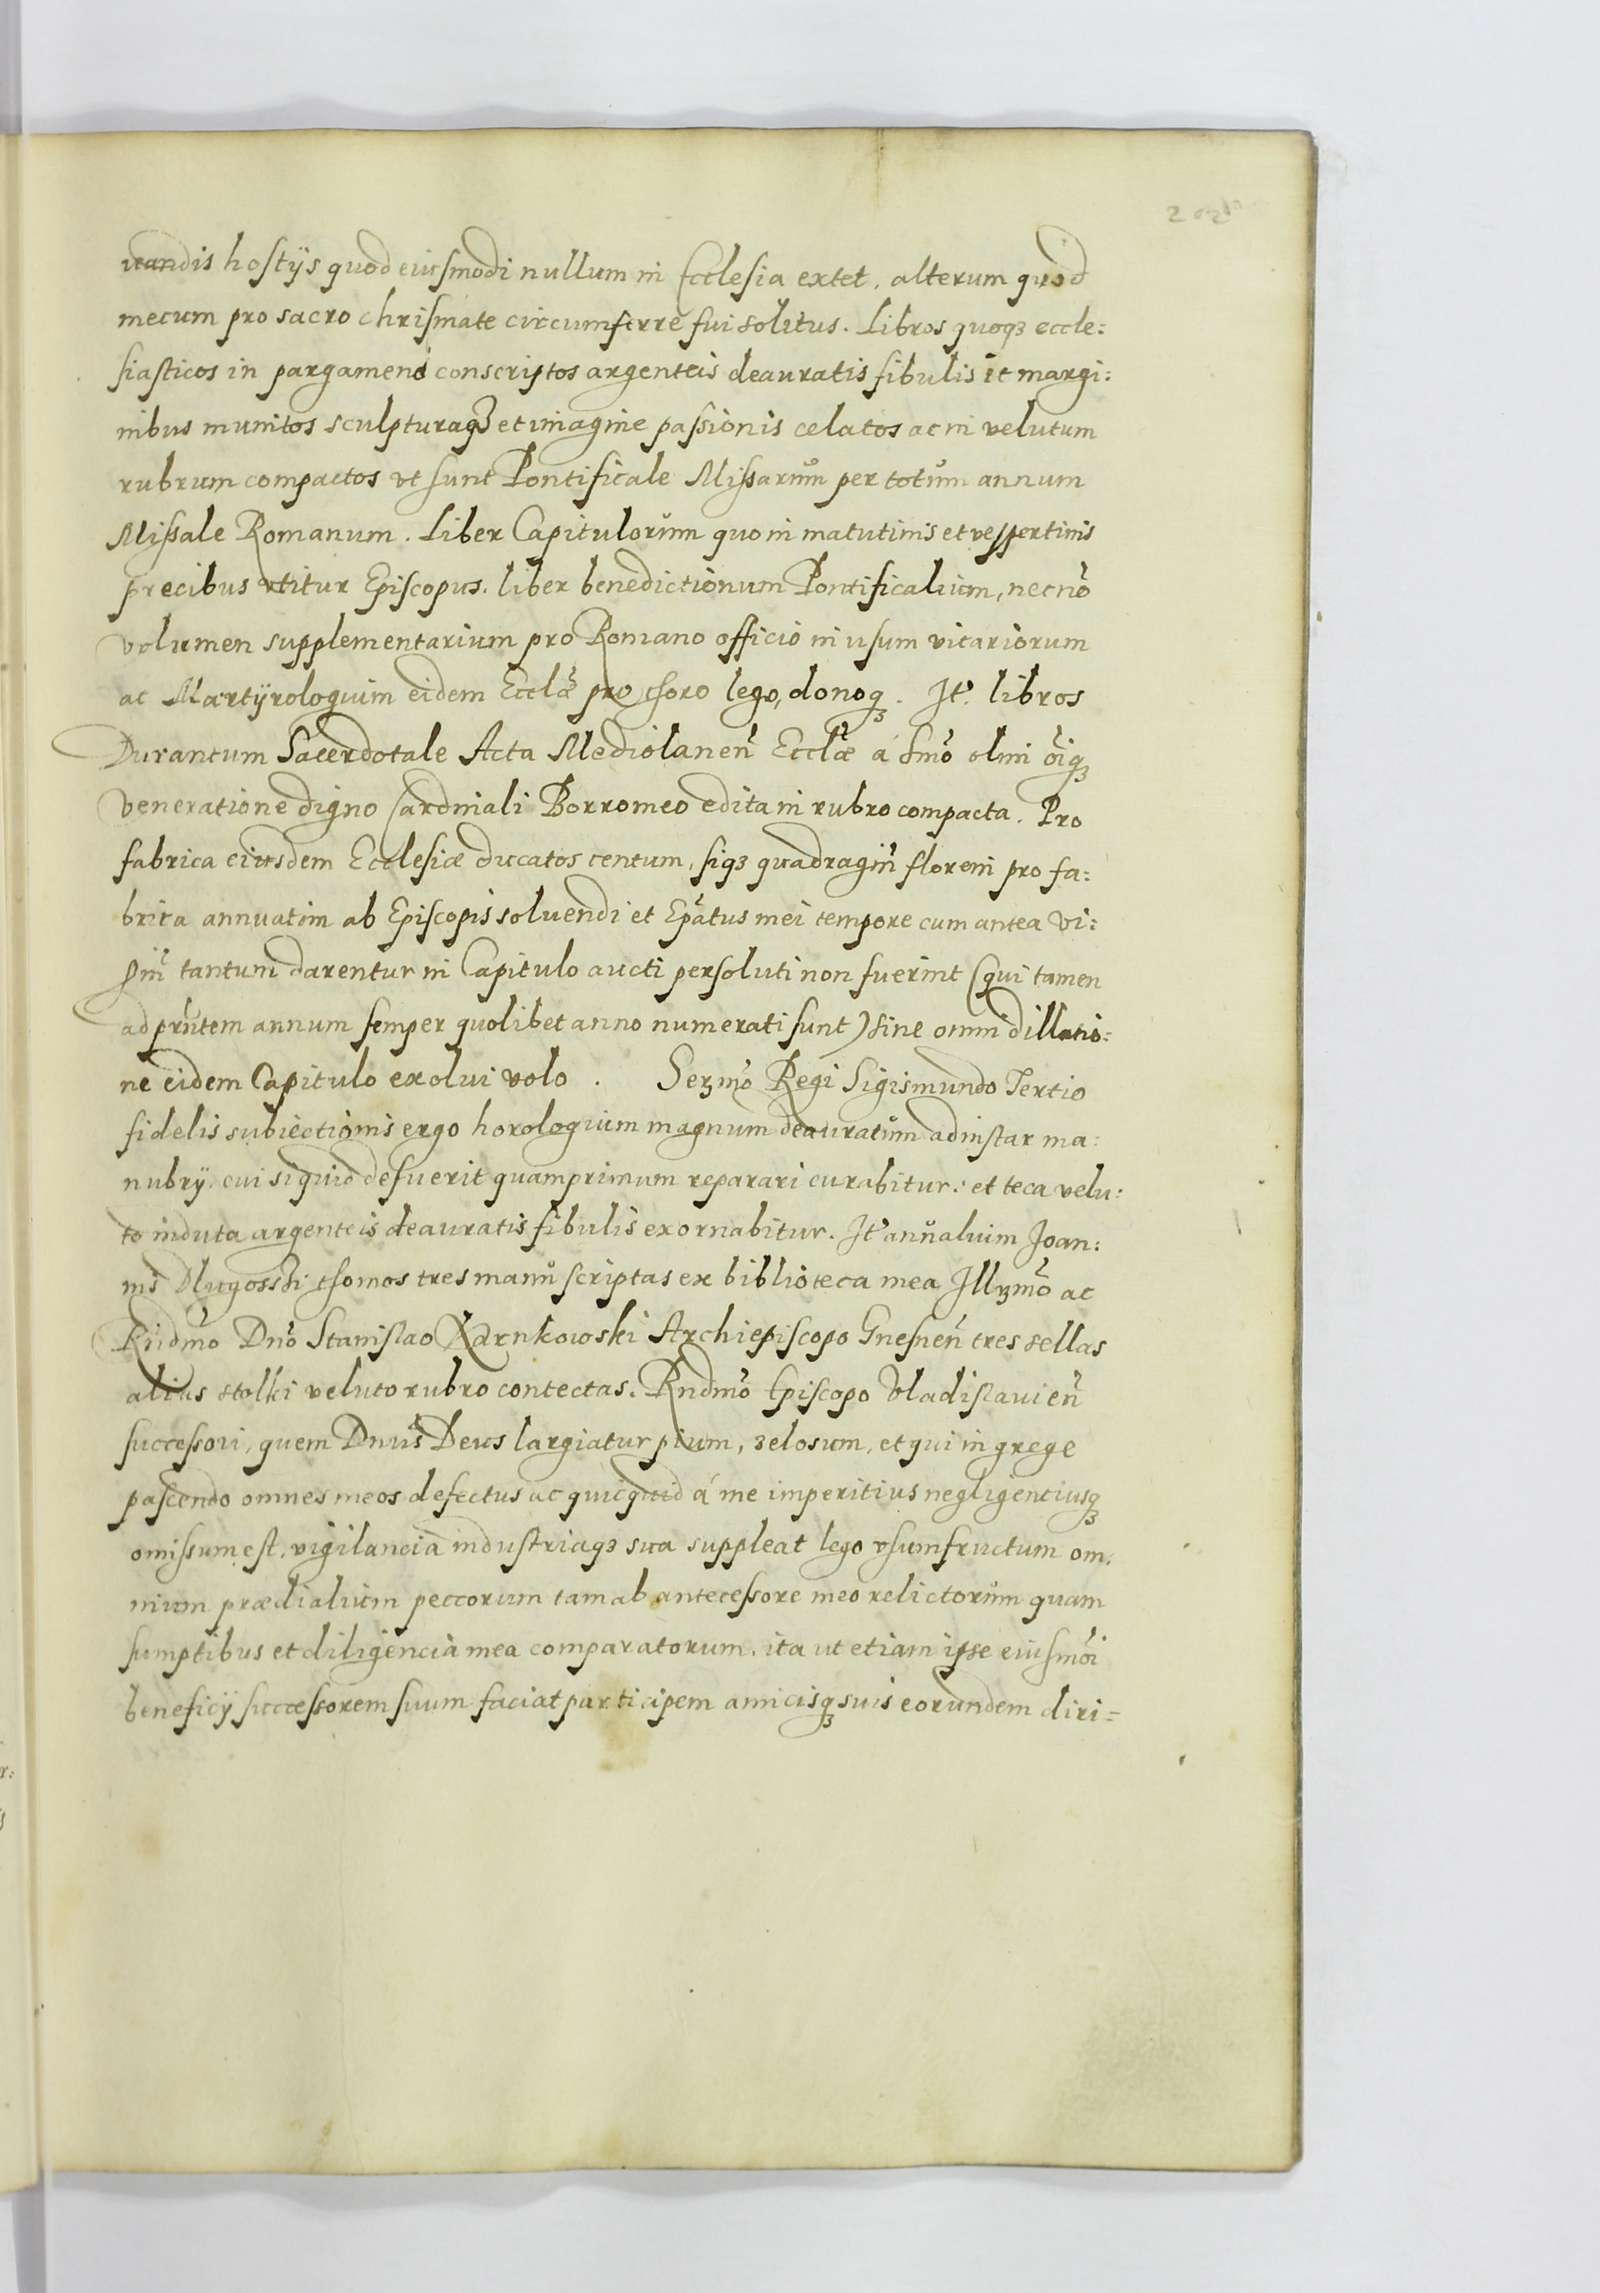 uandis hostÿs quod eiusmodi nullum in Ecclesia extet, alterum quod
mecum pro sacro chrismate circumferre fui solitus. Libros quoqꝫ eccle:
siasticos in pargameno conscriptos argenteis deauratis fibulis et margi:
nibus munitos sculpturaqꝫ et imagine passionis celatos ac in velutum
rubrum compactos vt sunt Pontificale Missarům per totům annum
Missale Romanum. Liber Capitulorům quo in matutinis et vespertinis
precibus vtitur Episcopus. liber benedictionum Pontificalium, necnō
volumen supplementarium pro Romano officio in usum vicariorum
ac Martÿrologium eidem Ecclāe pro thoro lego, donoqꝫ. It. libros
Durantum Sacerdotale Acta Mediolaneñ Ecclāe á Smō olim oīqꝫ
veneratione digno Cardinali Borromeo edita in rubro compacta. Pro
fabrica eiusdem Ecclesiæ ducatos centum, siqꝫ quadragiñ floreni pro fa:
brica annuatim ab Episcopis soluendi et Epātus mei tempore cum antea vi:
giñ tantum darentur in Capitulo aucti persoluti non fuerint (qui tamen
ad prñtem annum semper quolibet anno numerati sunt) sine omni dillatio:
ne eidem Capitulo exolui volo. Serꝫmō Regi Sigismundo Tertio
fidelis subiectionis ergo horologium magnum deauratům ad instar ma:
nubrÿ. cui siquid defuerit quamprimum reparari curabitur: et teca velu:
to induta argenteis deauratis fibulis exornabitur. It anñalium Joan:
nis Dlugosski thomos tres manů scriptas ex biblioteca mea Illꝫmō ac
Rñdmo Dnō Stanislao Karnkowski Archiepiscopo Gnesneñ tres sellas
alius stolki veluto rubro contectas. Rndmō Episcopo Vladislauieñ
successori, quem Dnus Deus largiatur pium, zelosum, et qui in grege
pascendo omnes meos defectus ac quicquid á me imperitius negligentiusqꝫ
omissum est, vigilancia industriaqꝫ sua suppleat lego vsumfructum om:
nium prædialium peccorum tam ab antecessore meo relictorům quam
sumptibus et diligencia mea comparatorum, ita ut etiam ipse eiusmōi
beneficÿ successorem suum faciat participem amicisqꝫ suis eorundem diri=